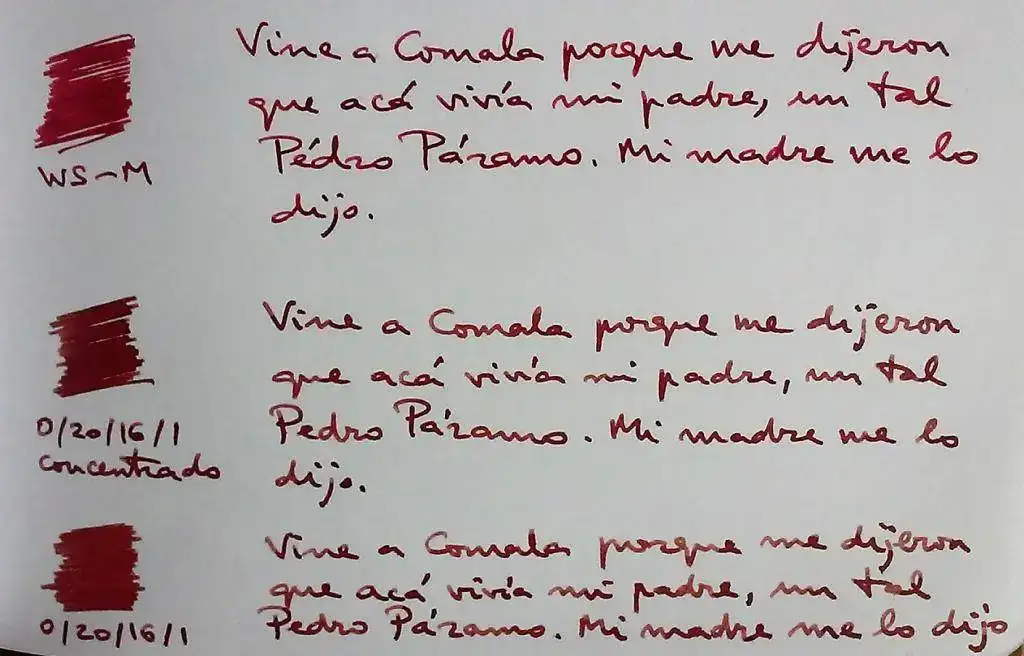 Vine a Comala porque me dijeron
que acá vivía mi padre, un tal
Pédro Páramo. Mi madre me lo
dijo.
WS-M
Vine a Comala porque me dijeron
que acá vivía mi padre, un tal
Pedro Páramo. Mi madre me lo
dijo.
0/20/16/1
concentrado
Vine a Comala porque me dijeron
que acá vivía mi padre, un tal
Pedro Páramo. Mi madre me lo dijo
0/20/16/1